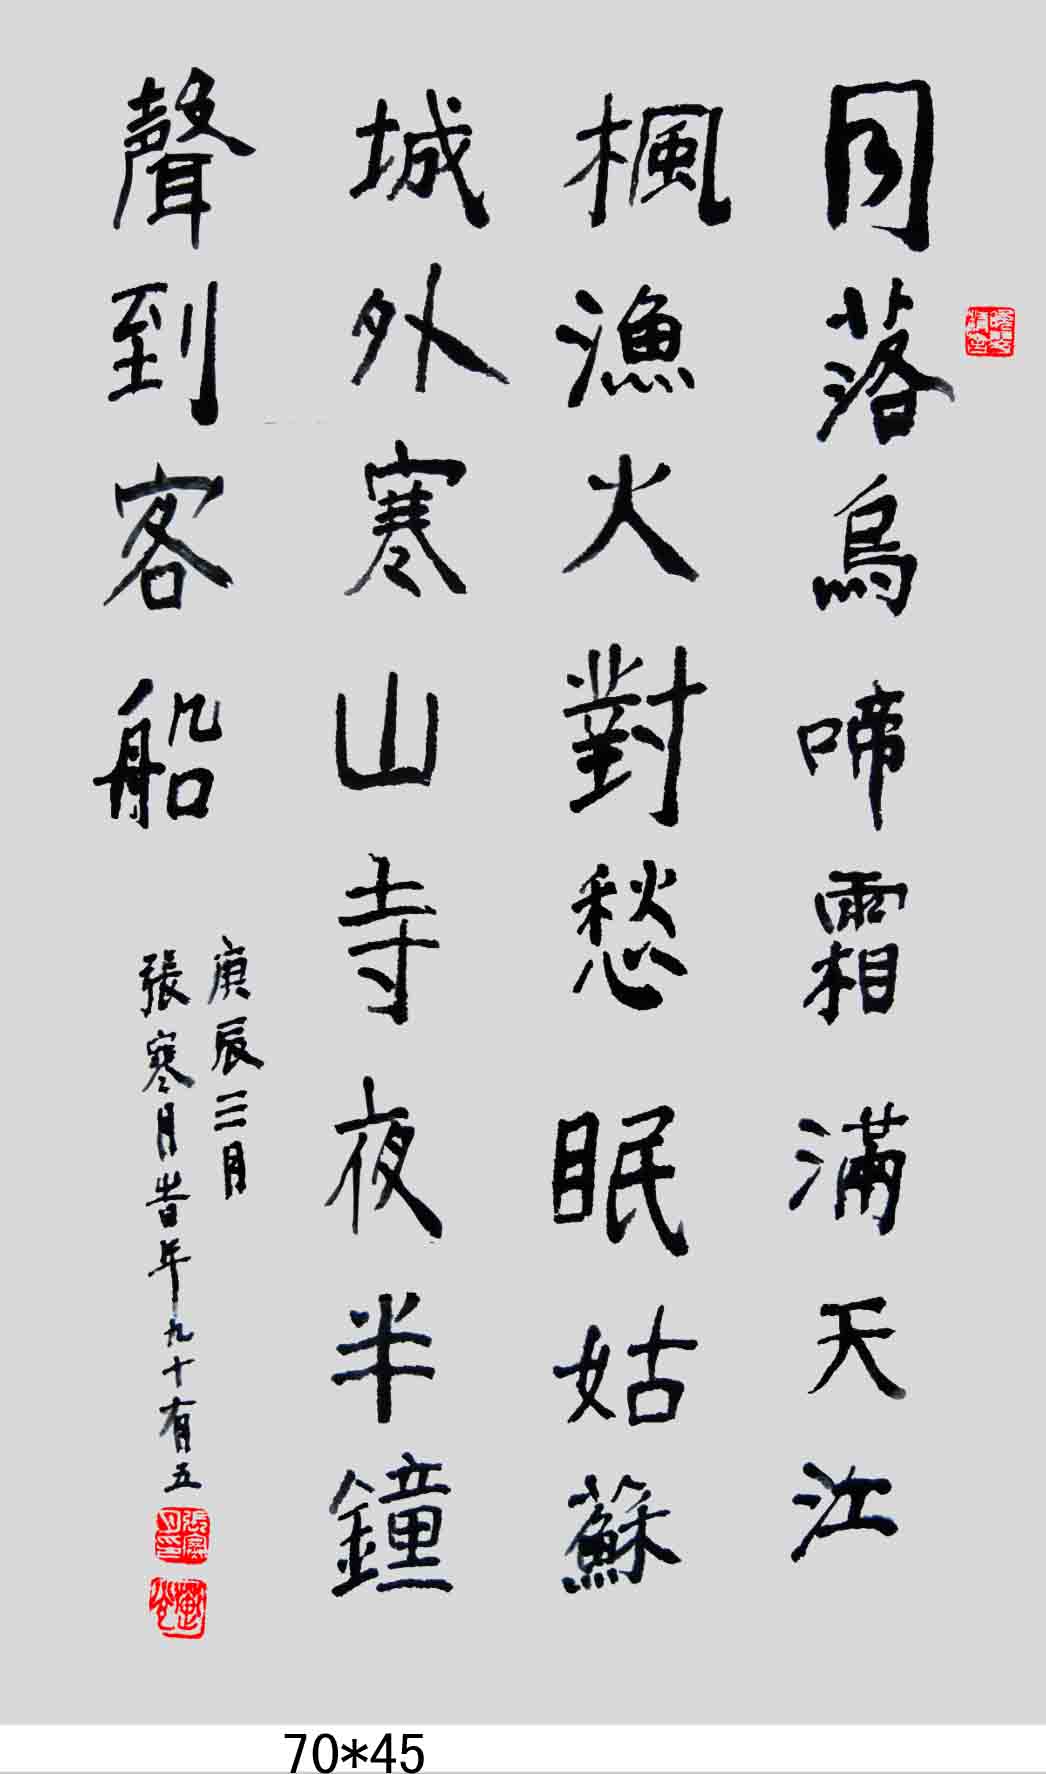 月落烏啼霜滿天江
楓漁火對愁眠姑蘇
城外寒山寺夜半鐘
聲到客船
庚辰三月
張寒月旹年九十有五
張寒月印
70*45